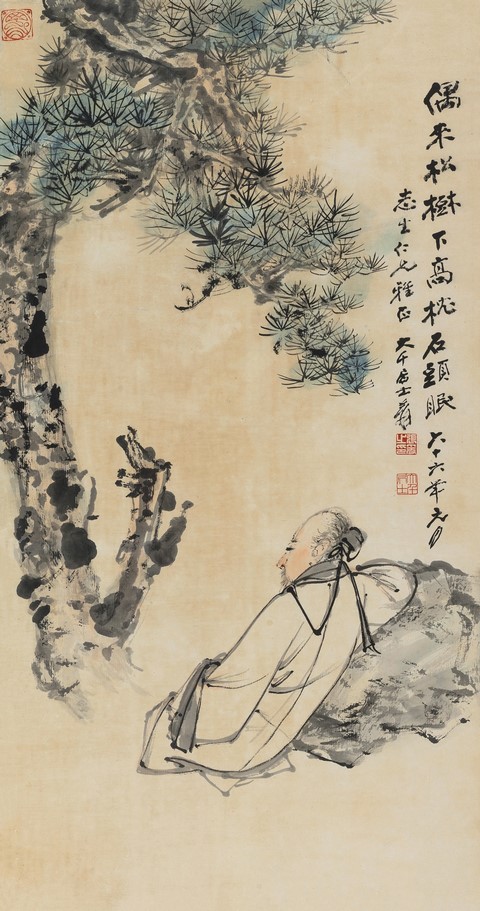 偶來松樹下高枕石頭眠六十六年元月
志生仁兄雅正大千居士爰